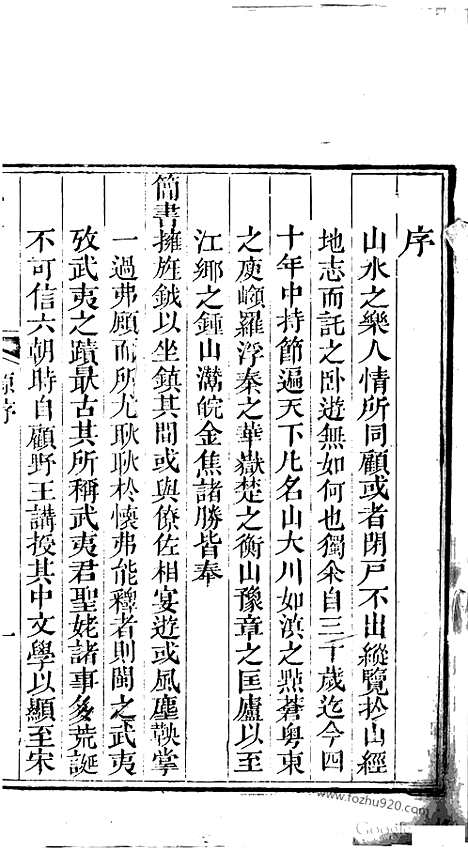 序
山水之樂人情所同顧或者閉戶不出縱覽於山經
地志而託之卧遊無如何也獨余自三十歲迄今四
十年中持節遍天下凡名山大川如滇之點蒼粤東
之庾嶺羅浮秦之華嶽楚之衡山豫章之匡廬以至
江鄉之鍾山潛皖金焦諸勝皆奉
簡書擁旌鉞以坐鎮其間或與僚佐相宴遊或風塵鞅掌
一過弗顧而所尤耿耿於懷弗能釋者則閩之武夷
攷武夷之蹟最古其所稱武夷君聖姥諸事多荒誕
不可信六朝時自顧野王講授其中文學以顯至宋
原序
一
www.fozhu920.com
Google